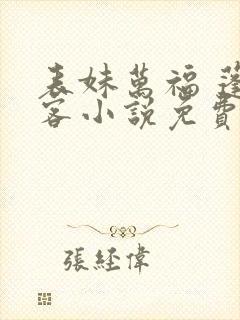 表妹萬福 蓬
客小說免費
張經偉